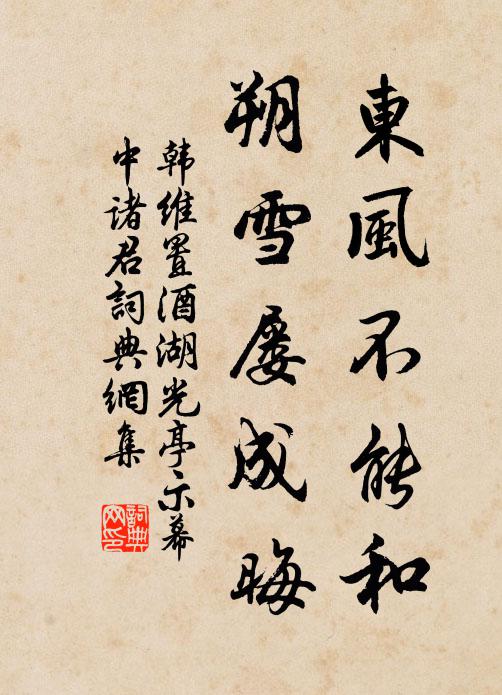 東風不能和
朔雪屡成晦
韩維置酒湖光亭示幕
中诸君詞典網集
詞典网印